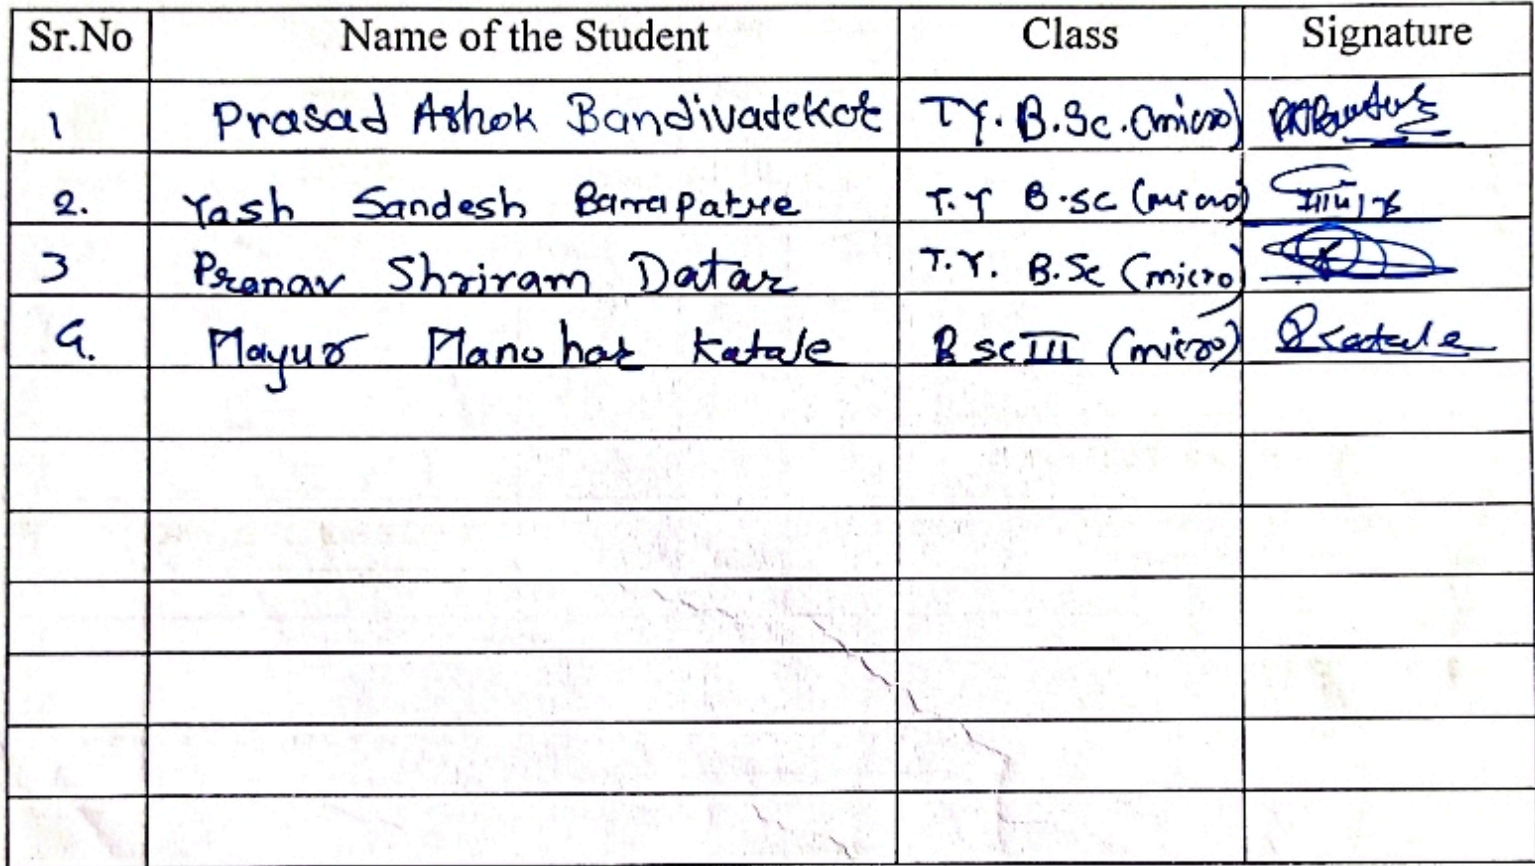 Sr.No Name of the Student Class Signature
1 Prasad Ashok Bandivadekar T.Y. B.Sc. (micro)
2. Yash Sandesh Barapatre T.Y B.SC (micro)
3 Pranav Shriram Datar T.Y. B.Sc (micro)
4. Mayur Manohar Katale B sc III (micro)